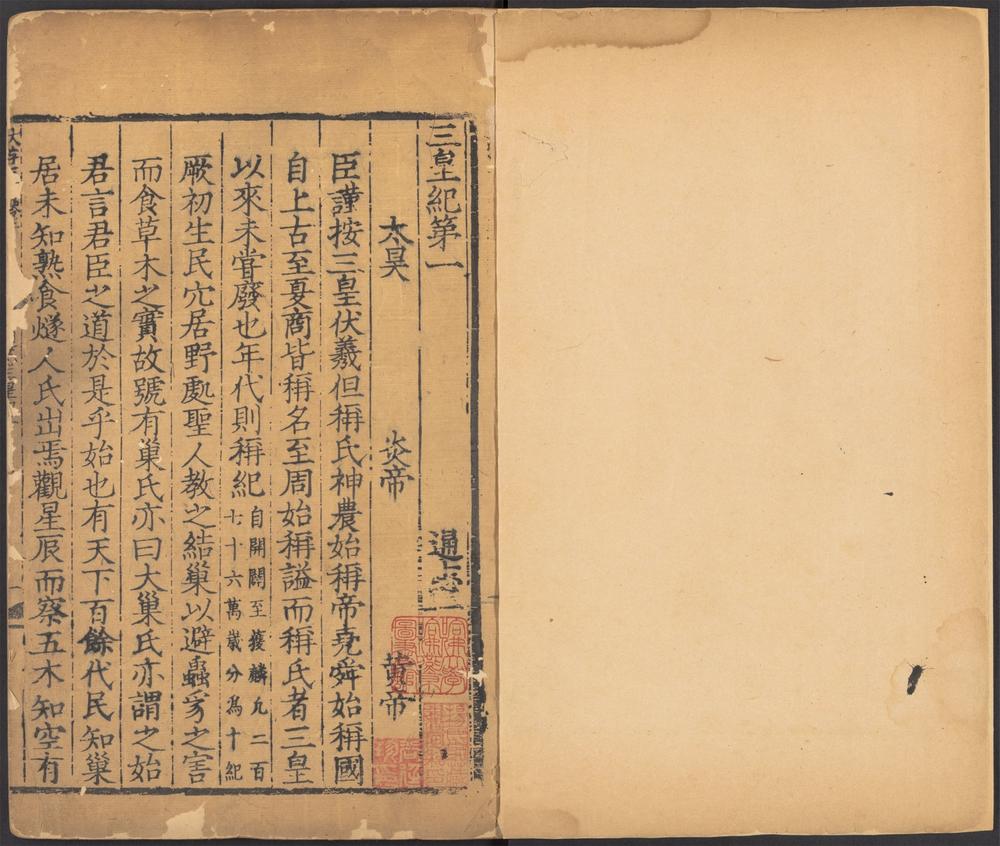 三皇紀第一　　通志一
太昊　　炎帝　　黄帝
臣謹按三皇伏羲但稱氏神農始稱帝堯舜始稱國
自上古至夏商皆稱名至周始稱謚而稱氏者三皇
以來未甞廢也年代則稱紀
自開闢至獲麟九二百
七十六萬歲分爲十紀
厥初生民穴居野處聖人教之結巢以避蟲豸之害
而食草木之實故號有巢氏亦曰大巢氏亦謂之始
君言君臣之道於是乎始也有天下百餘代民知巢
居未知熟食燧人氏出焉觀星辰而察五木知空有